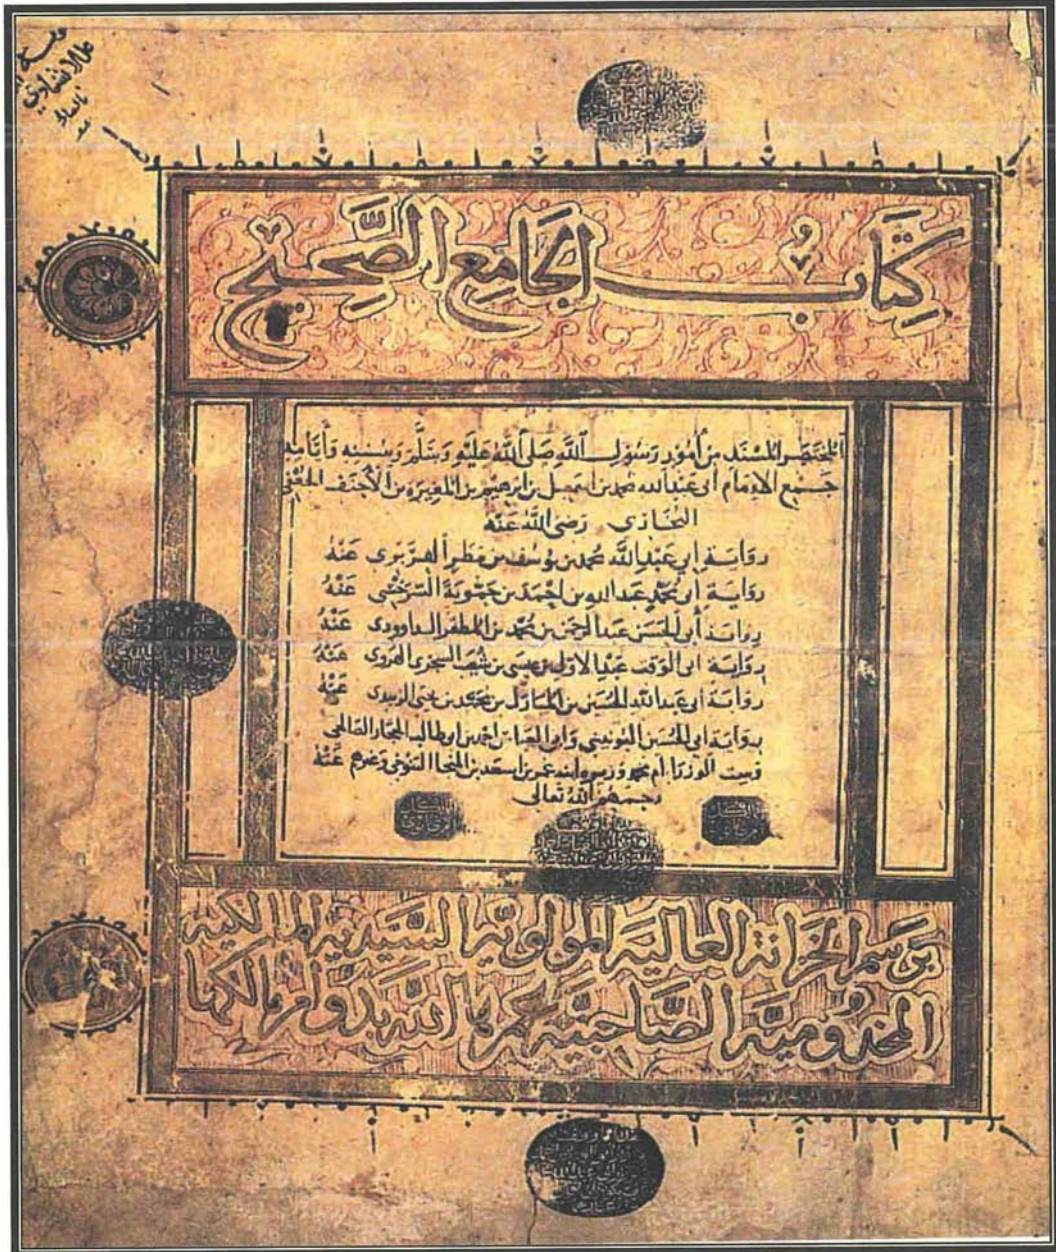 كِتَابُ الْجَامِعِ الصَّحِيْحِ
المختصر المسند من أمور رسول الله صلى الله عليه وسلم وسننه وأيامه
جمع الإمام أبي عبد الله محمد بن اسمعيل بن ابرهيم بن المغيرة بن الأحنف الجعفي
البخاري رضي الله عنه
رواية أبي عبد الله محمد بن يوسف بن مطر الفربري عنه
رواية أبي محمد عبد الله بن أحمد بن حمويه السرخسي عنه
رواية أبي الحسن عبد الرحمن بن محمد بن المظفر الداوودي عنه
رواية أبي الوقت عبد الأول بن عيسى بن شعيب السجزي الهروي عنه
رواية ابي عبد الله الحسين بن المبارك بن محمد بن يحيى الزبيدي عنه
رواية ابي الحسين اليونيني وابي العباس احمد بن ابي طالب الحجار الصالحي
وست الوزرا أم محمد وزيره ابنه عمر بن اسعد بن المنجا التنوخي وغيرهم عنه
رحمهم الله تعالى
برسم الخزانة العالية المولوية السيدية المالكية
المخدومية الصاحبية عمرها الله بدوام مالكها